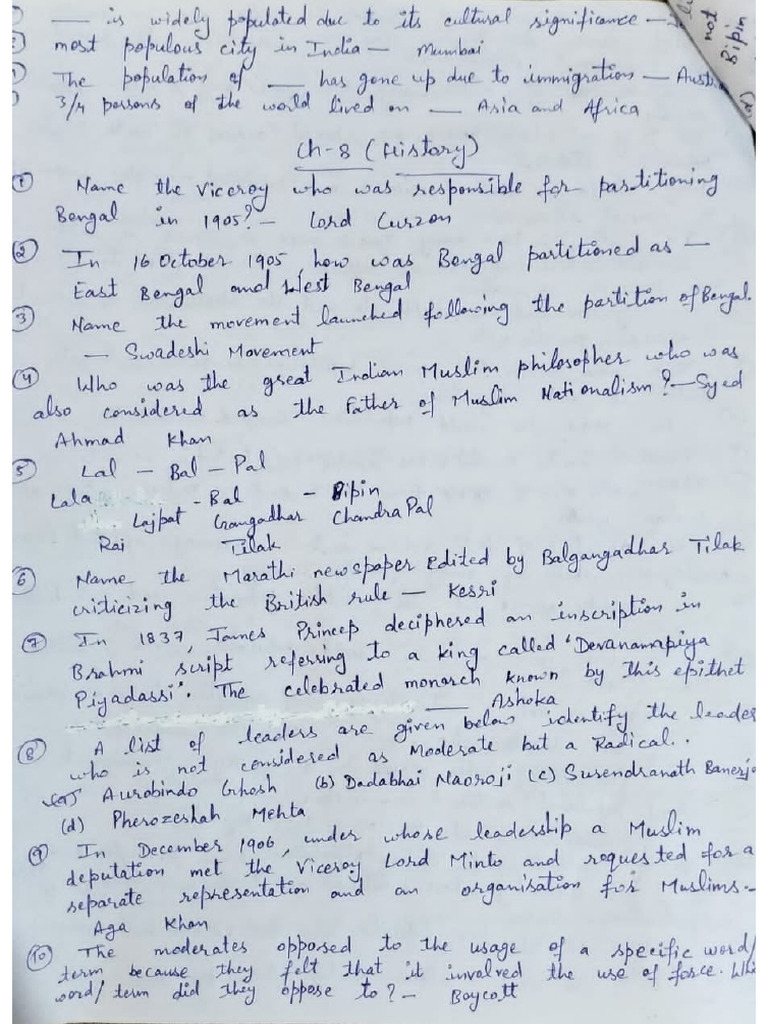 — is widely populated due to its cultural significance —
most populous city in India — Mumbai
The population of — has gone up due to immigration — Aust
3/4 persons of the world lived on — Asia and Africa
not
Bipin
Ch-8 (History)
① Name the Viceroy who was responsible for partitioning
Bengal in 1905? — Lord Curzon
② In 16 October 1905 how was Bengal partitioned as —
East Bengal and West Bengal
③ Name the movement launched following the partition of Bengal.
— Swadeshi Movement
④ Who was the great Indian Muslim philosopher who was
also considered as the Father of Muslim Nationalism? — Syed
Ahmad Khan
⑤ Lal — Bal — Pal
Lala - Bal - Bipin
Lajpat Gangadhar Chandra Pal
Rai Tilak
⑥ Name the Marathi newspaper edited by Balgangadhar Tilak
criticizing the British rule — Kesri
⑦ In 1837, James Princep deciphered an inscription in
Brahmi script referring to a king called 'Devanamapiya
Piyadassi'. The celebrated monarch known by this epithet
— Ashoka
⑧ A list of leaders are given below identify the leader
who is not considered as Moderate but a Radical..
(a) Aurobindo Ghosh (b) Dadabhai Naoroji (c) Surendranath Banerje
(d) Pherozeshah Mehta
⑨ In December 1906, under whose leadership a Muslim
deputation met the Viceroy Lord Minto and requested for a
separate representation and an organisation for Muslims.-
Aga Khan
⑩ The moderates opposed to the usage of a specific word/
term because they felt that it involved the use of force. Whi
word/ term did they oppose to? — Boycott